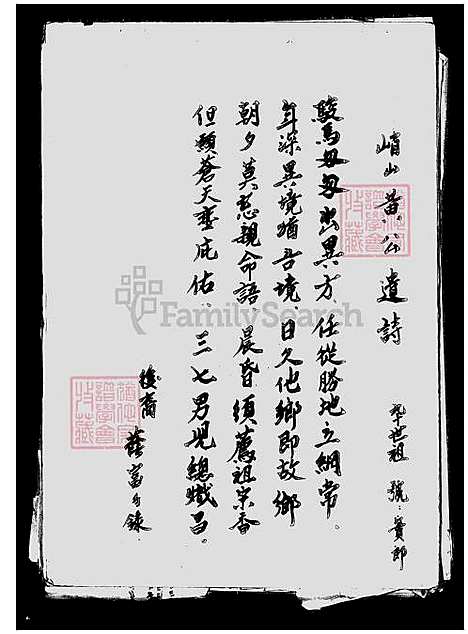 峭山黃公遺詩
九十世祖 號：賓郎
駿馬匆匆出異方、任從勝地立綱常。
年深異境猶吾境、日久他鄉即故鄉
朝夕莫忘親命語、晨昏須薦祖宗香
但願蒼天垂庇佑、三七男兒總熾昌。
後裔
富 錄
FamilySearch